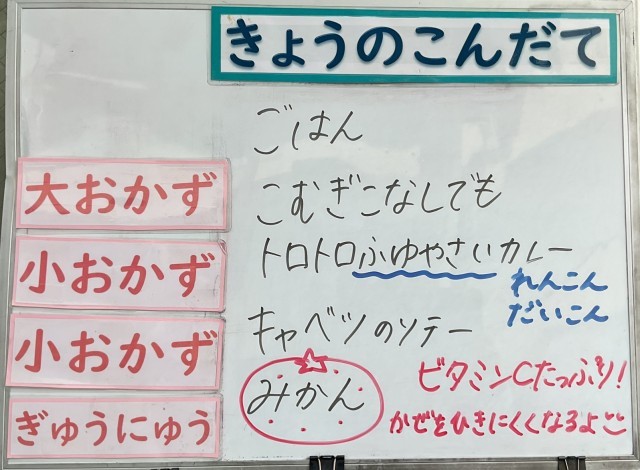 きょうのこんだて
ごはん
大おかず
こむぎこなしでも
小おかず
トロトロふゆやさいカレー
れんこん
だいこん
小おかず
キャベツのソテー
みかん
ビタミンCたっぷり!
かぜをひきにくくなるよ
ぎゅうにゅう